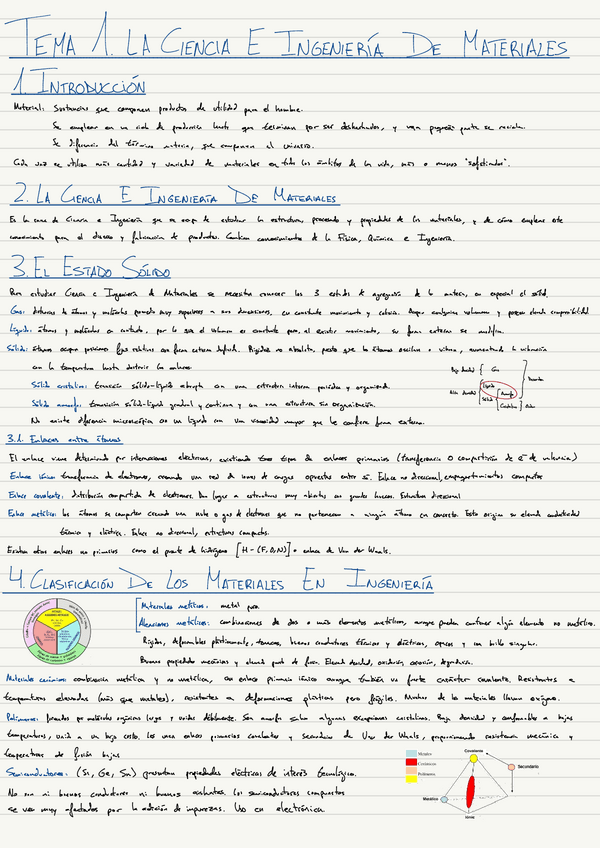 TEMA 1. LA CIENCIA E INGENIERÍA DE MATERIALES
1. INTRODUCCIÓN
Material: Sustancias que componen productos de utilidad para el hombre.
Se emplean en un ciclo de producción hasta que terminan por ser deshechados, y una pequeña parte se recicla.
Se diferencia del término materia, que componen el universo.
Cada vez se utiliza más cantidad y variedad de materiales en todos los ámbitos de la vida, más o menos "sofisticados".
2. LA CIENCIA E INGENIERÍA DE MATERIALES
Es la rama de Ciencia e Ingeniería que se ocupa de estudiar la estructura, procesado y propiedades de los materiales, y de cómo emplear este
conocimiento para el diseño y fabricación de productos. Combina conocimientos de la Física, Química e Ingeniería.
3. EL ESTADO SÓLIDO
Para estudiar Ciencia e Ingeniería de Materiales se necesita conocer los 3 estados de agregación de la materia, en especial el sólido.
Gas: distancias de átomos y moléculas promedio muy superiores a sus dimensiones, en constante movimiento y caótico. Ocupa cualquier volumen y poseen elevada compresibilidad
Líquido: átomos y moléculas en contacto, por lo que el volumen es constante pero, al existir movimiento, su forma externa se modifica.
Sólido: átomos ocupan posiciones fijas relativas con forma externa definida. Rigidez no absoluta, puesto que los átomos oscilan o vibran, aumentando la vibración
con la temperatura hasta destruir los enlaces.
Baja densidad Gas
Alta densidad Líquido Sólido Amorfo Cristalino
Desorden
Orden
Sólido cristalino: transición sólido-líquido abrupta con una estructura interna periódica y organizada.
Sólido amorfo: transición sólido-líquido gradual y continua y con una estructura sin organización.
No existe diferencia microscópica con un líquido con una viscosidad mayor que le confiere forma externa.
3.1. Enlaces entre átomos
El enlace viene determinado por interacciones eléctricas, existiendo tres tipos de enlaces primarios (transferencia o compartición de e⁻ de valencia)
Enlace iónico: transferencia de electrones, creando una red de iones de cargas opuestas entre sí. Enlace no direccional, empaquetamientos compactos
Enlace covalente: distribución compartida de electrones. Dan lugar a estructuras muy abiertas con grandes huecos. Estructura direccional
Enlace metálico: los átomos se comparten creando una nube o gas de electrones que no pertenecen a ningún átomo en concreto. Esto origina su elevada conductividad
térmica y eléctrica. Enlace no direccional, estructuras compactas.
Existen otros enlaces no primarios como el puente de hidrógeno [H-(F,O,N)] o enlace de Van der Waals.
4. CLASIFICACIÓN DE LOS MATERIALES EN INGENIERÍA
Materiales metálicos: metal puro
Aleaciones metálicas: combinaciones de dos o más elementos metálicos, aunque pueden contener algún elemento no metálico.
Rígidos, deformables plásticamente, tenaces, buenos conductores térmicos y eléctricos, opacos y con brillo singular.
Buenas propiedades mecánicas y elevado punto de fusión. Elevada densidad, oxidación, corrosión, degradación.
Materiales cerámicos: combinación metálica y no metálica, con enlace primario iónico aunque también en parte carácter covalente. Resistentes a
temperaturas elevadas (más que metales), resistentes a deformaciones plásticas pero frágiles. Muchos de los materiales llevan oxígeno.
Polímeros: formados por moléculas orgánicas largas y unidas débilmente. Son amorfos salvo algunas excepciones cristalinas. Baja densidad y conformables a bajas
temperaturas, unido a un bajo coste. Los unen enlaces primarios covalentes y secundarios de Van der Waals, proporcionando resistencia mecánica y
temperaturas de fusión bajas
Semiconductores: (Si, Ge, Sn) presentan propiedades eléctricas de interés tecnológico.
No son ni buenos conductores ni buenos aislantes. Los semiconductores compuestos
se ven muy afectados por la adición de impurezas. Uso en electrónica
Metales
Cerámicos
Polímeros
Covalente
Secundario
Metálico
Iónico